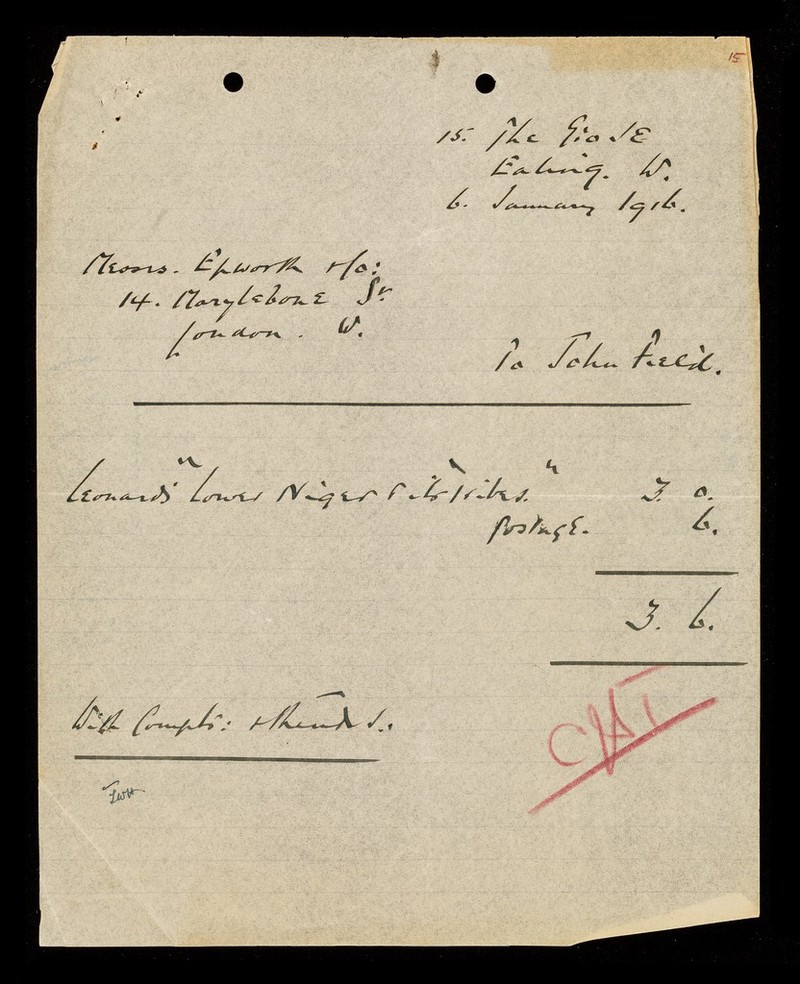 15
15. The Grove
Ealing. W.
6. January 1916.
Messrs. Epworth & Co:
14. Marylebone St.
London. W.
To John Field.
Leonard's "Lower Niger & its tribes." 3. 0.
Postage. 6.
3. 6.
With Compts: & thanks.